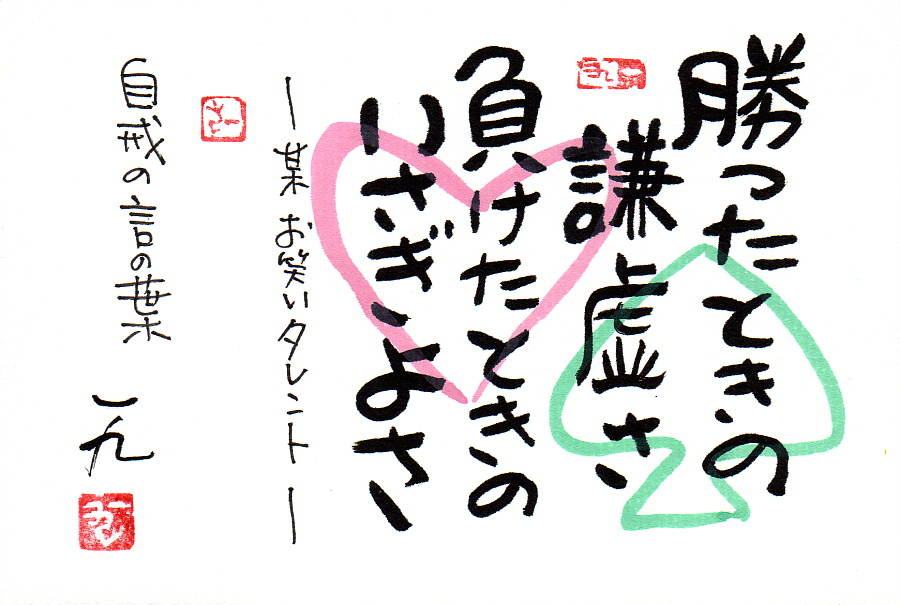 勝ったときの
謙虚さ
負けたときの
いさぎよさ
― 某 お笑いタレント ―
自戒の言の葉
一九